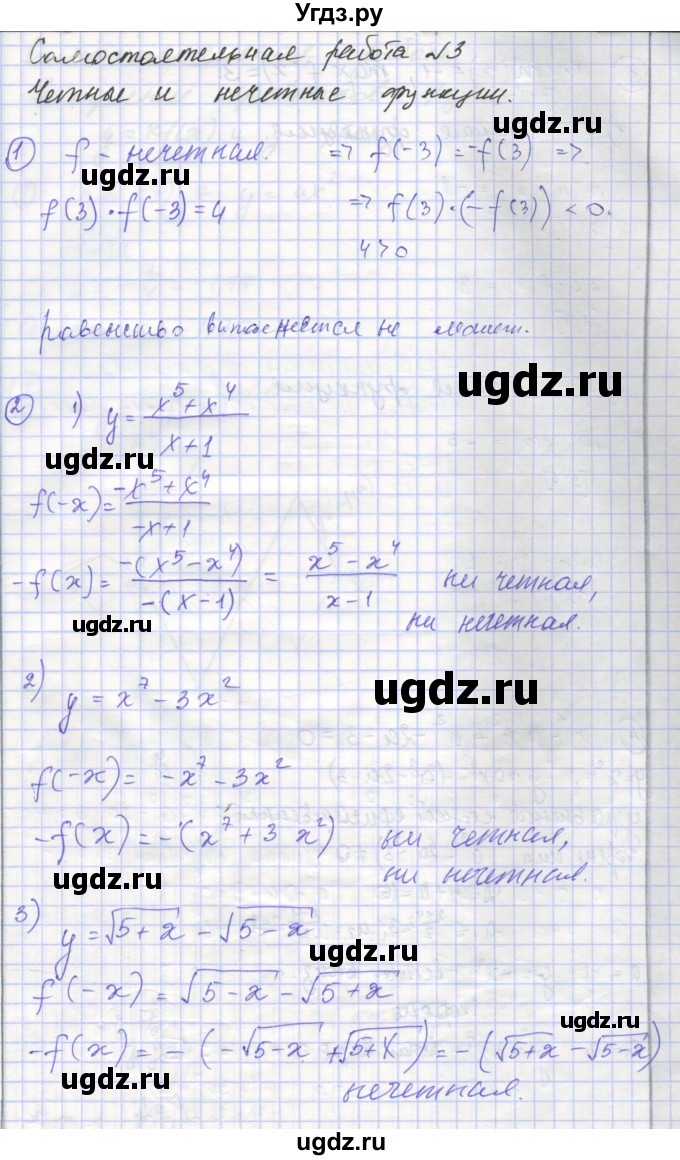 Угдз.ру
Самостоятельная работа №3
Четные и нечетные функции.
1 f - нечетная. => f(-3) = -f(3) =>
ugdz.ru
f(3)·f(-3)=4 => f(3)·(-f(3)) < 0.
ugdz.ru
4>0
равенство выполняется не может.
ugdz.ru
2 1) y = (x^5+x^4)/(x+1)
ugdz.ru
f(-x) = (-x^5+x^4)/(-x+1)
-f(x) = (-(x^5-x^4))/(-(x-1)) = (x^5-x^4)/(x-1) ни четная,
ugdz.ru
ни нечетная.
2) y = x^7 - 3x^2
ugdz.ru
f(-x) = -x^7 - 3x^2
-f(x) = -(x^7+3x^2) ни четная,
ugdz.ru
ни нечетная.
3) y = √(5+x) - √(5-x)
ugdz.ru
f(-x) = √(5-x) - √(5+x)
ugdz.ru
-f(x) = -(-√(5-x) + √(5+x)) = -(√(5+x) - √(5-x))
ugdz.ru
нечетная.
ugdz.ru